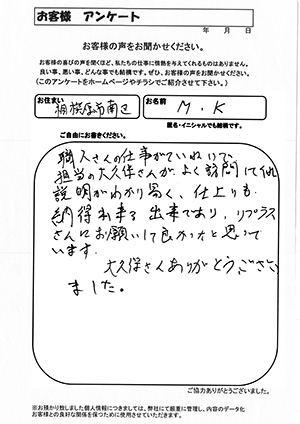 お客様 アンケート
年 月 日
お客様の声をお聞かせください。
お客様の喜びの声を聞くほど、私たちの仕事に情熱を与えてくれるものはありません。
良い事、悪い事、どんな事でも結構です。ぜひ、お客様の声をお聞かせください。
(このアンケートをホームページやチラシでご紹介させて下さい。)
お住まい
相模原市南区
お名前
M.K
匿名・イニシャルでも結構です。
ご自由にお書きください。
職人さんの仕事がていねいで、
担当の大久保さんがよく訪問してくれ
説明がわかり易く、仕上りも
納得出来る出来であり、リプラス
さんにお願いして良かったと思って
います。
大久保さんありがとうござい
ました。
ご協力ありがとうございました。
※お預かり致しました個人情報につきましては、弊社にて厳重に管理し、内容のデータ化
お客様との良好な関係を保つために使用させていただきます。